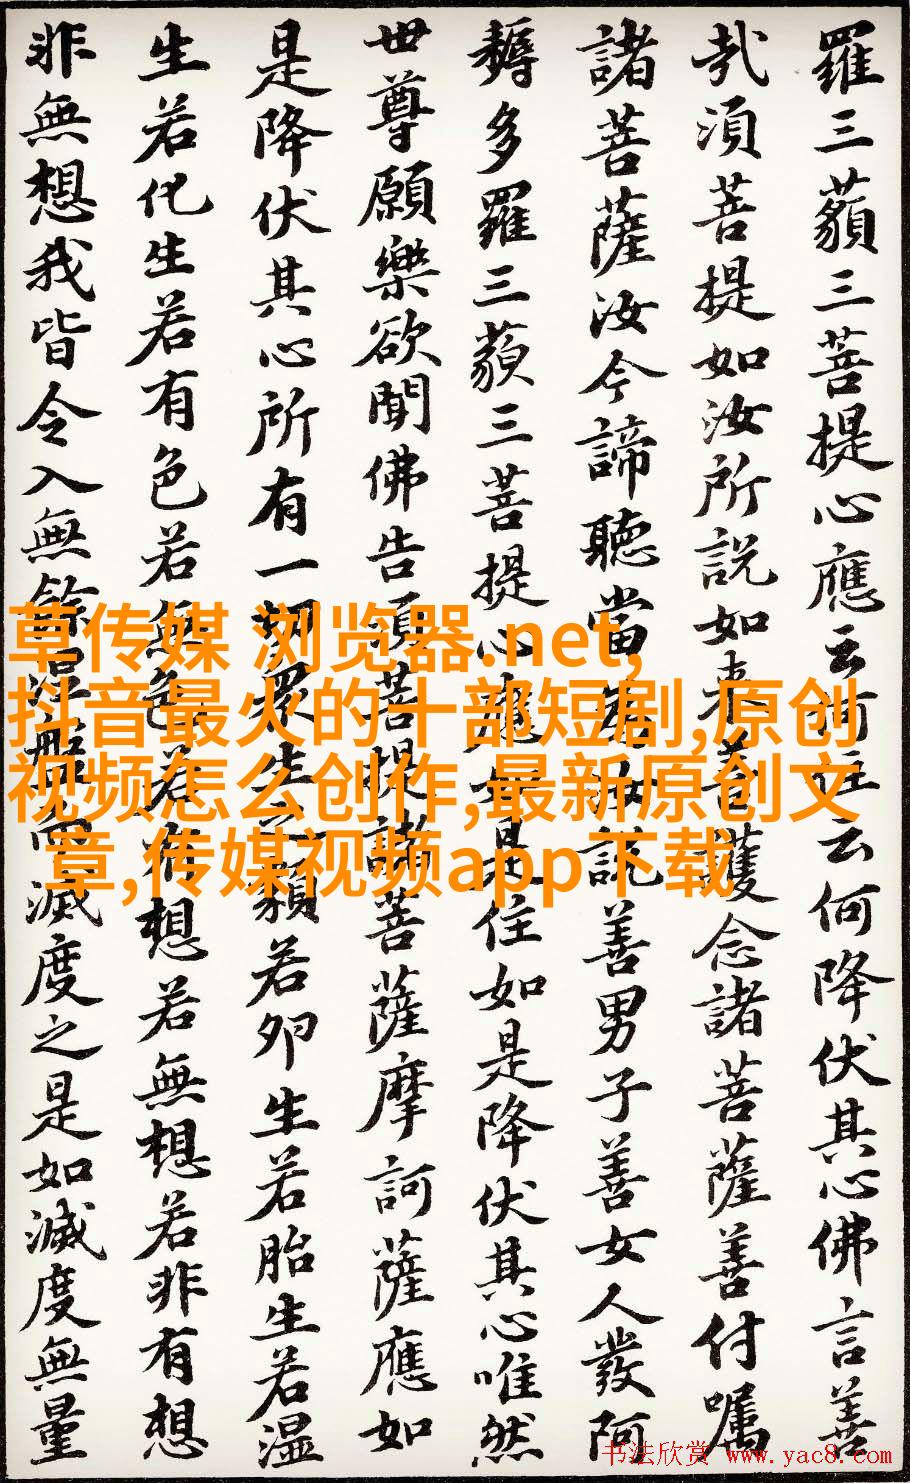 羅三藐三菩提心應云何住云何降伏其心佛言善
哉須菩提如汝所說如来善護念諸菩薩善付嘱
諸菩薩汝今諦聽當為汝說善男子善女人發阿
耨多羅三藐三菩提心應如是住如是降伏其心唯然
世尊願樂欲聞佛告須菩提諸菩薩摩訶薩應如
是降伏其心所有一切眾生之類若卵生若胎生若温
生若化生若有色若無色若有想若無想若非有想
非無想我皆令入無餘涅槃而滅度之是如滅度無量
草传媒 浏览器.net,
抖音最火的十部短剧,原创
视频怎么创作,最新原创文
章,传媒视频app下载
书法欣赏 www.yac8.com